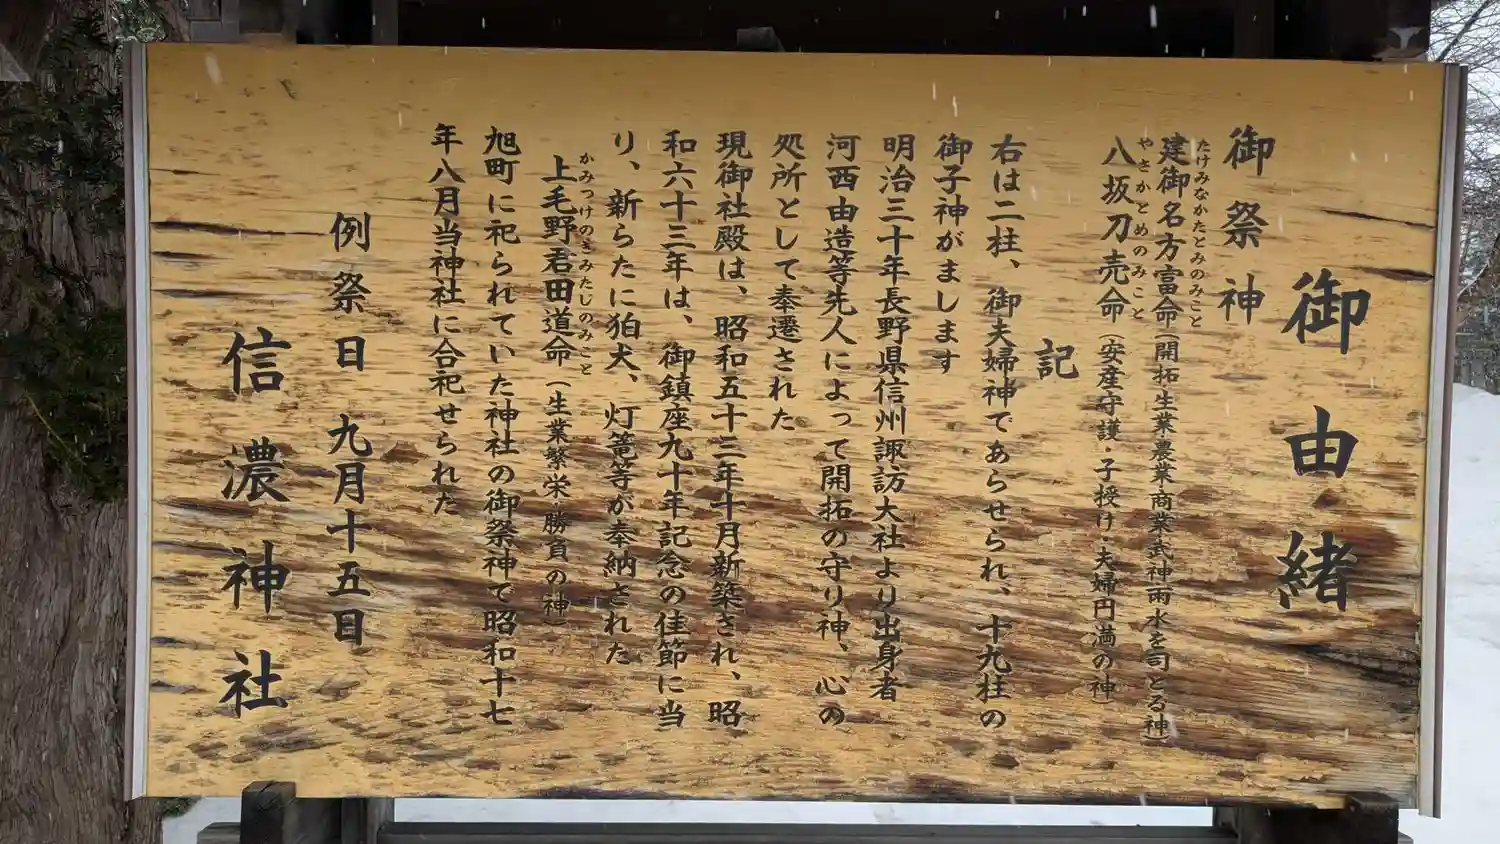 御由緒
御祭神
建御名方富命（開拓生業・農業・商業・武神・雨水を司とる神）
たけみなかたとみのみこと
八坂刀売命（安産守護・子授け・夫婦円満の神）
やさかとめのみこと
記
右は二柱、御夫婦神であらせられ、十九柱の
御子神がまします
明治三十年長野県信州諏訪大社より出身者
河西由造等先人によって開拓の守り神、心の
処所として奉遷された
現御社殿は、昭和五十三年十月新築され、昭
和六十三年は、御鎮座九十年記念の佳節に当
り、新らたに狛犬、灯篭等が奉納された
上毛野君田道命（生業繁栄・勝負の神）
かみつけのきみたじのみこと
旭町に祀られていた神社の御祭神で昭和十七
年八月当神社に合祀せられた
例祭日 九月十五日
信濃神社